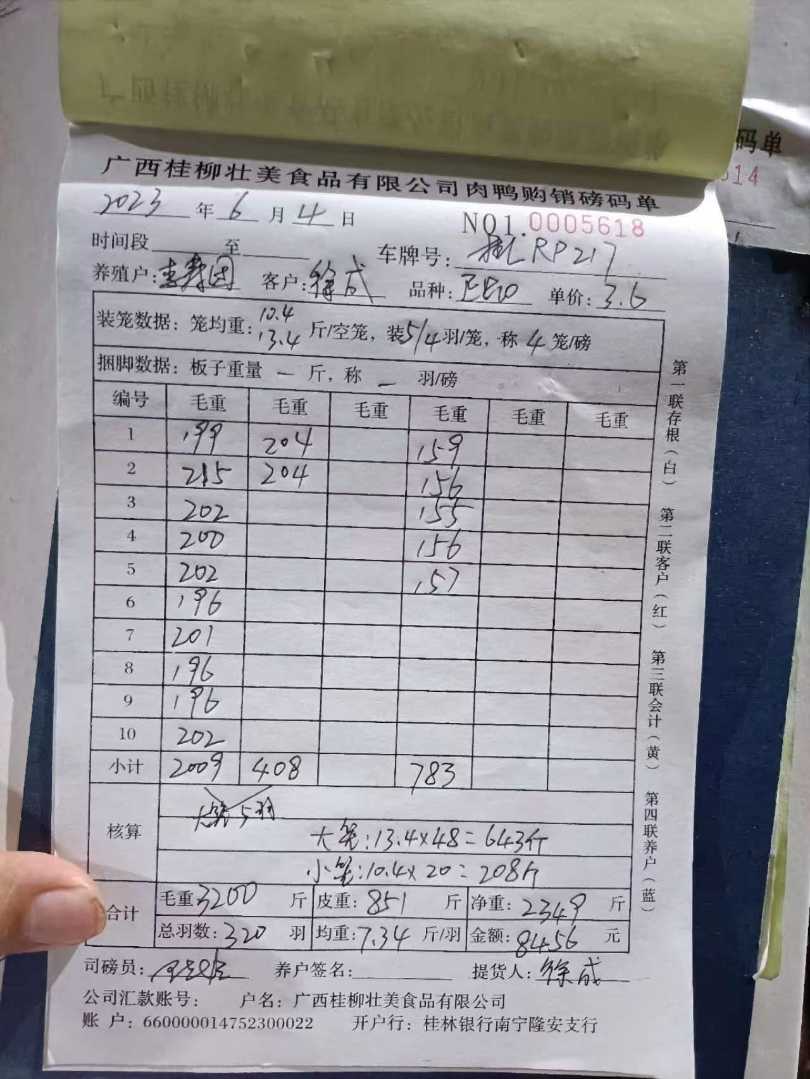 广西桂柳壮美食品有限公司肉鸭购销磅码单
2023 年 6 月 4 日 NO1.0005618
时间段 至 车牌号: RP217
养殖户: 客户: 徐成 品种: 单价: 3.6
装笼数据: 笼均重: 10.4 13.4 斤/空笼, 装5/4羽/笼, 称 4 笼/磅
捆脚数据: 板子重量 — 斤, 称 — 羽/磅
编号 毛重 毛重 毛重 毛重 毛重 毛重
1 199 204 159
2 215 204 156
3 202 155
4 200 156
5 202 157
6 196
7 201
8 196
9 196
10 202
小计 2009 408 783
核算 5羽
大笼:13.4×48=643斤
小笼:10.4×20=208斤
合计 毛重3200 斤 皮重: 851 斤 净重: 2349 斤
总羽数: 320 羽 均重: 7.34 斤/羽 金额: 8456 元
司磅员: 养户签名: 提货人: 徐成
公司汇款账号: 户名: 广西桂柳壮美食品有限公司
账 户: 660000014752300022 开户行: 桂林银行南宁隆安支行
第一联存根(白) 第二联客户(红) 第三联会计(黄) 第四联养户(蓝)
码单